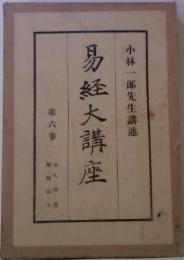 小林一郎先生講述
易經大講座
第六卷